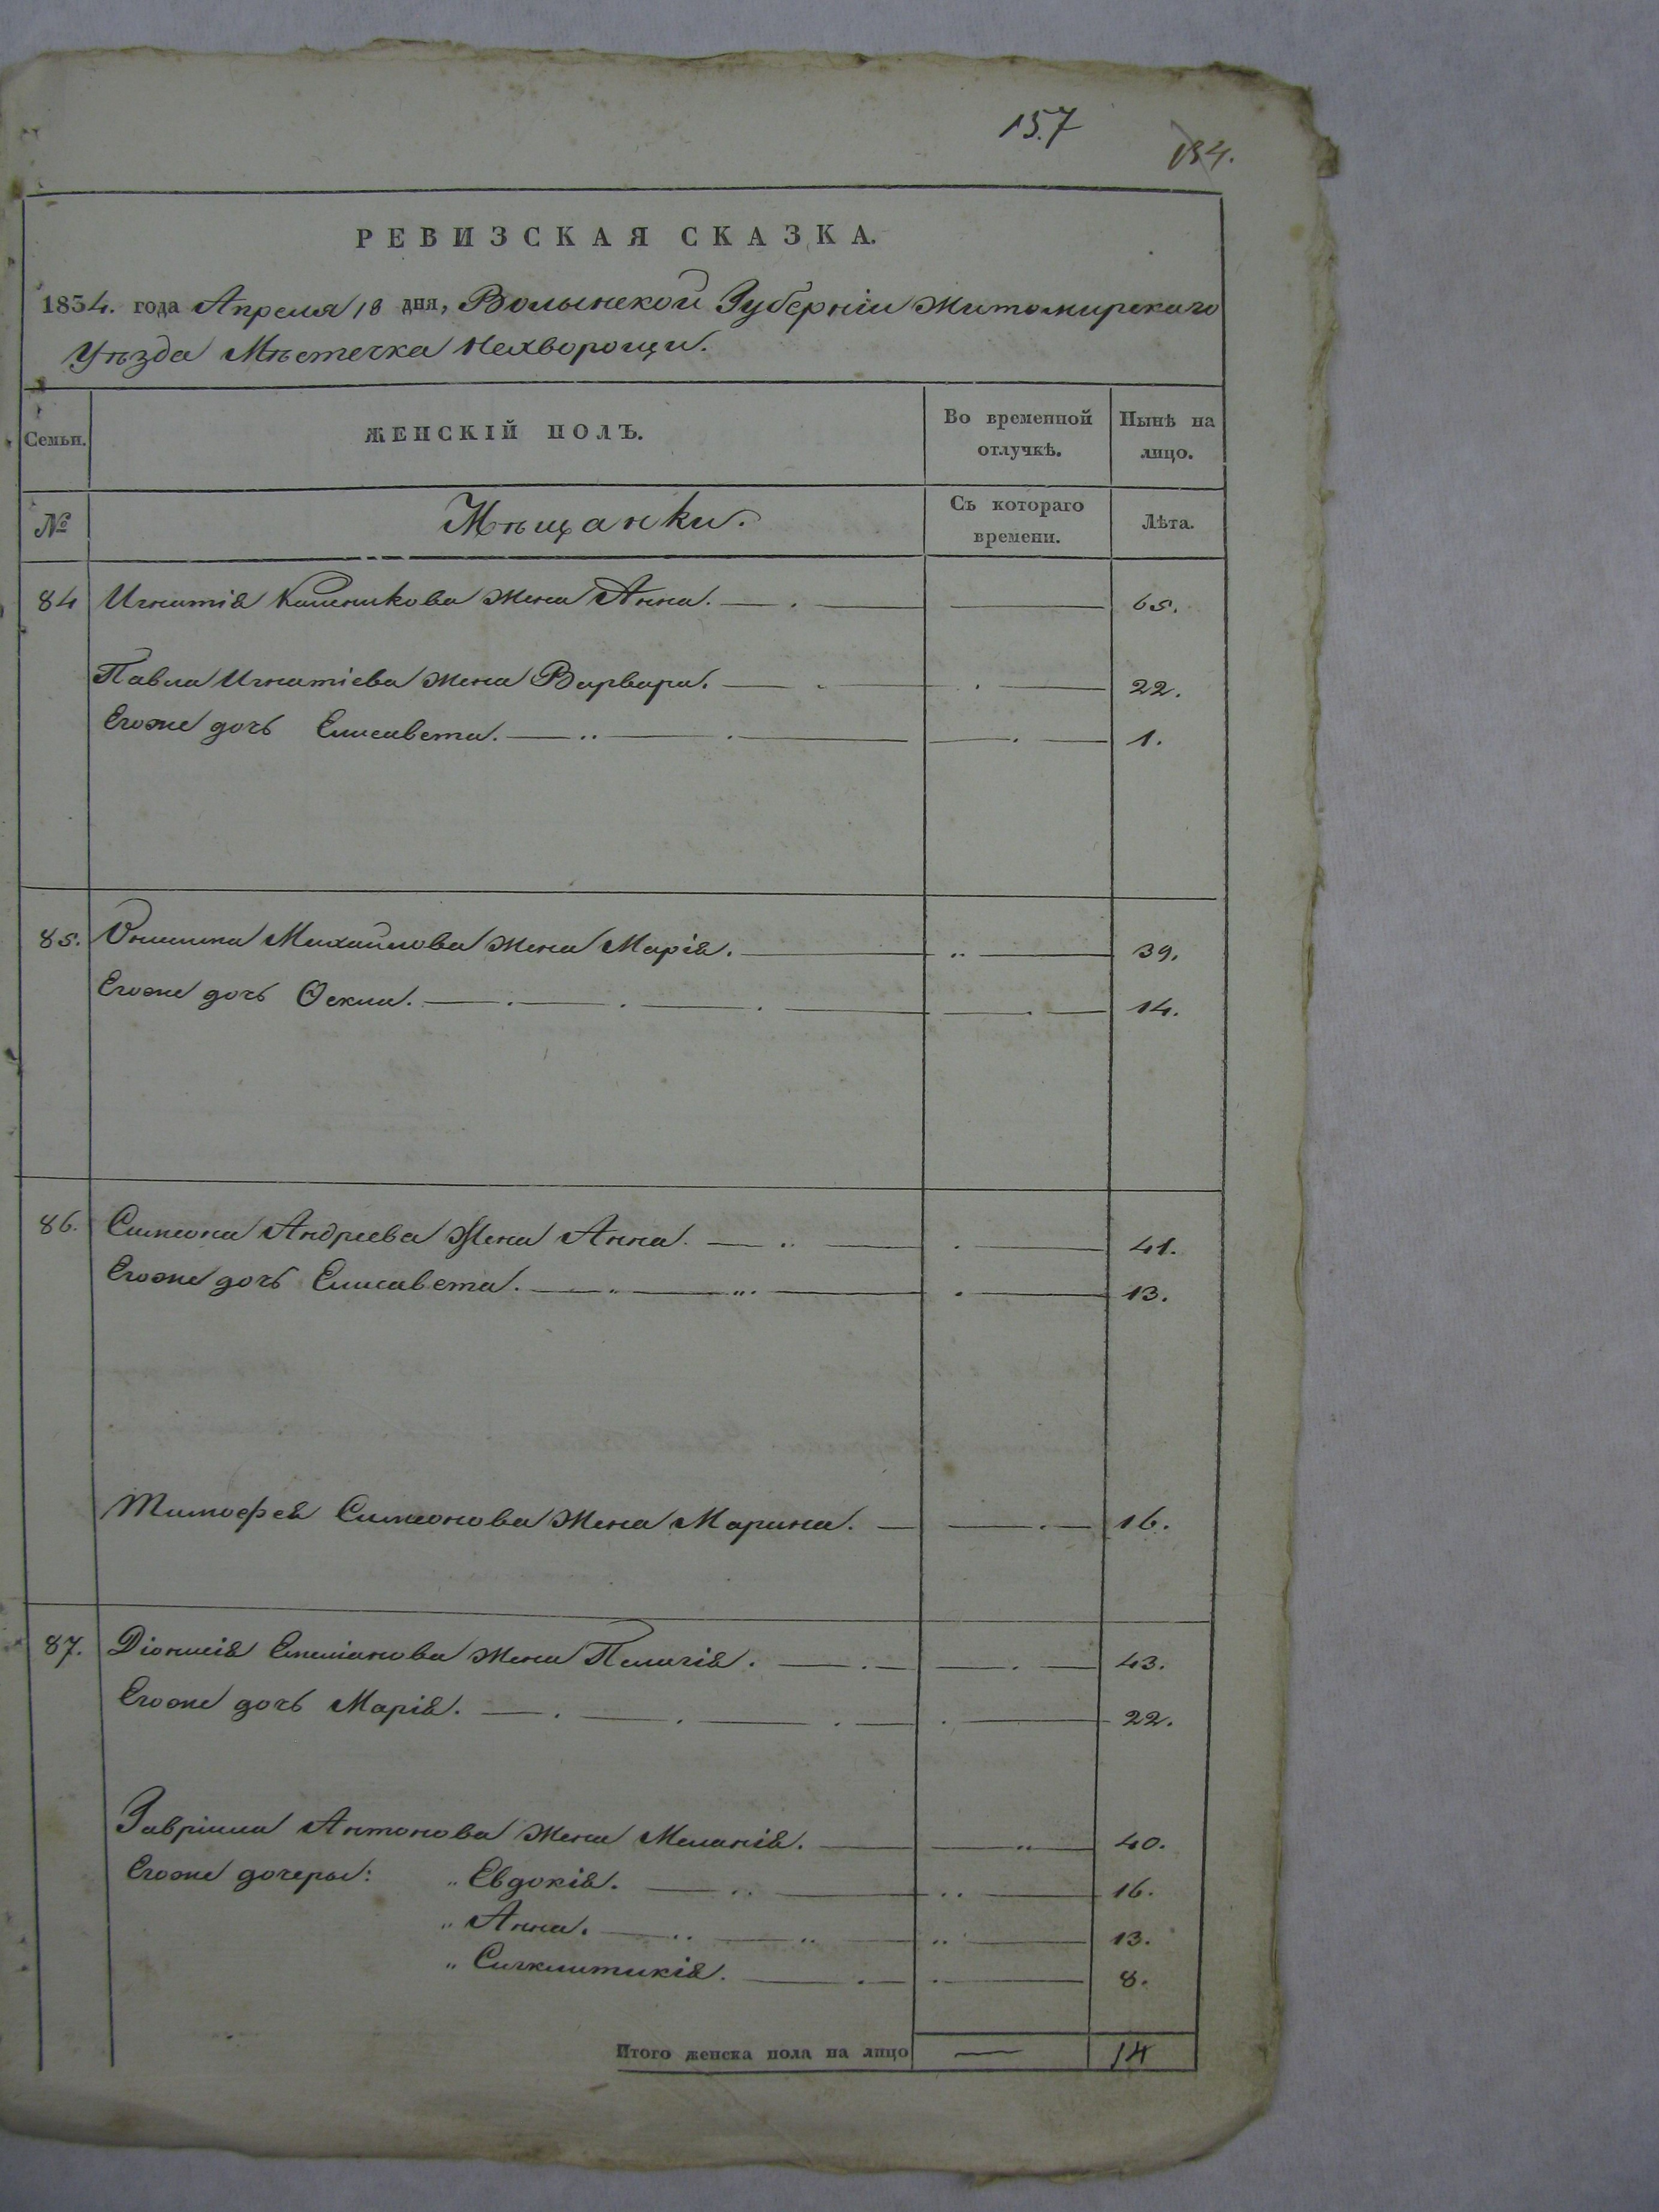 157
134.
РЕВИЗСКАЯ СКАЗКА.
1834. года Апреля 18 дня, Волынской Губерніи Житомирскаго
Уѣзда Мѣстечка Нехворощи.
Семьи.
ЖЕНСКІЙ ПОЛЪ.
Во временной отлучкѣ.
Нынѣ на лицо.
№
Мѣщанки.
Съ котораго времени.
Лѣта.
84 Игнатія Каленикова жена Анна. 65.
Павла Игнатіева жена Варвара. 22.
Егоже дочь Елисавета. 1.
85. Михайлова жена Марія. 39.
Егоже дочь Ѳекла. 14.
86. Симеона Андреева Жена Анна. 41.
Егоже дочь Елисавета. 13.
Тимофея Симеонова Жена Марина. 16.
87. Діонисія Емеліанова жена Пелагія. 43.
Егоже дочь Марія. 22.
Гавріила Антонова жена Меланія. 40.
Егоже дочеры: „ Евдокія. 16.
„ Анна. 13.
„ Сигклитикія. 8.
Итого женска пола на лицо — 14